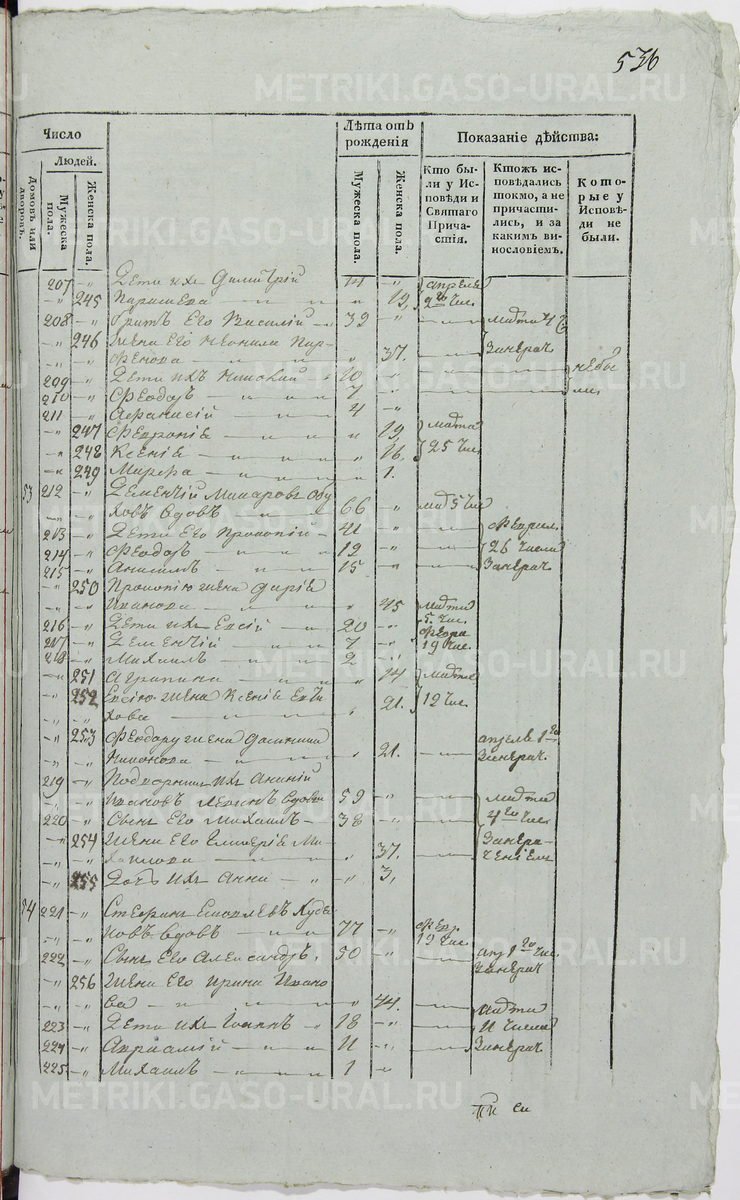 536
Число
Лѣта отъ рожденія
Показаніе дѣйства:
Людей.
Домовъ или дворовъ.
Мужеска пола.
Женска пола.
Мужеска пола.
Женска пола.
Кто бы-
ли у Ис-
повѣди и
Святаго
Прича-
стія.
Ктожъ ис-
повѣдались
токмо, а не
причасти-
лись, и за
какимъ ви-
нословіемъ.
Кото-
рые у
Исповѣ-
ди не
были.
207 Дети ихъ Димитрій 14 апреля
245 Параскева 19 9го Чис.
208 Братъ Его Василій 39 марта 4 Ч
246 Жена его Неонила Пар-
фенова 37. Занерач
209 Дети ихъ 10 небы
210 Феодоръ 7 ли
211 Афанасій 4
247 Феврониѣ 19, марта
248 Ксениѣ 16. 25 Чис
249 Марфа 1.
53 212 Дементій Макаровъ Обу
ховъ Вдовъ 66 мар 5 Чис
213 Дети Его Прокопій 41 Феврал.
214 Феодоръ 19 26 числа
215 15 Занерач
250 Прокопію жена Дариѣ
Иванова 45 Марта
216 Дети ихъ Евсій 20 5. Чис.
217 Дементій 7 Февра 19 Чис.
218 Михаилъ 2
251 Агрипина 14 Марта
252 Евсію жена Ксениѣ
хова 21. 12 Чис
253 Феодору жена
21. апреля 1го
Занерач.
219 Подворники ихъ Ананій
Ивановъ Вдовъ 59 марта
220 Сынъ Его Михаилъ 38 4го Чис
254 Жена Его Ми-
хаилова 37. Занера-
255 Дочь ихъ Анна 3, ченіем
54 221 Стефанъ
новъ Вдовъ 77 Февр. 19 Чис.
222 Сынъ Его Александръ 50 апр 1го Чис. Занерач
256 Жена Его Ирина Ивано
ва 44. Марта
223 Дети ихъ Іоаннъ 18 11 Числа
224 11 Занерач.
225 Михаилъ 1
METRIKI.GASO-URAL.RU